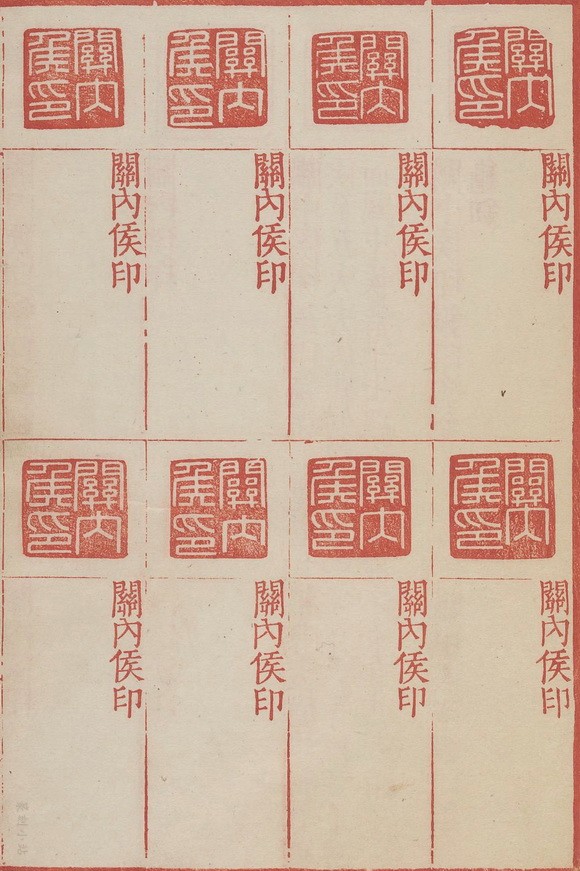 關內
侯印
關內侯印
關內
侯印
關內侯印
關內
侯印
關內侯印
關內
侯印
關內侯印
關內
侯印
關內侯印
關內
侯印
關內侯印
關內
侯印
關內侯印
關內
侯印
關內侯印